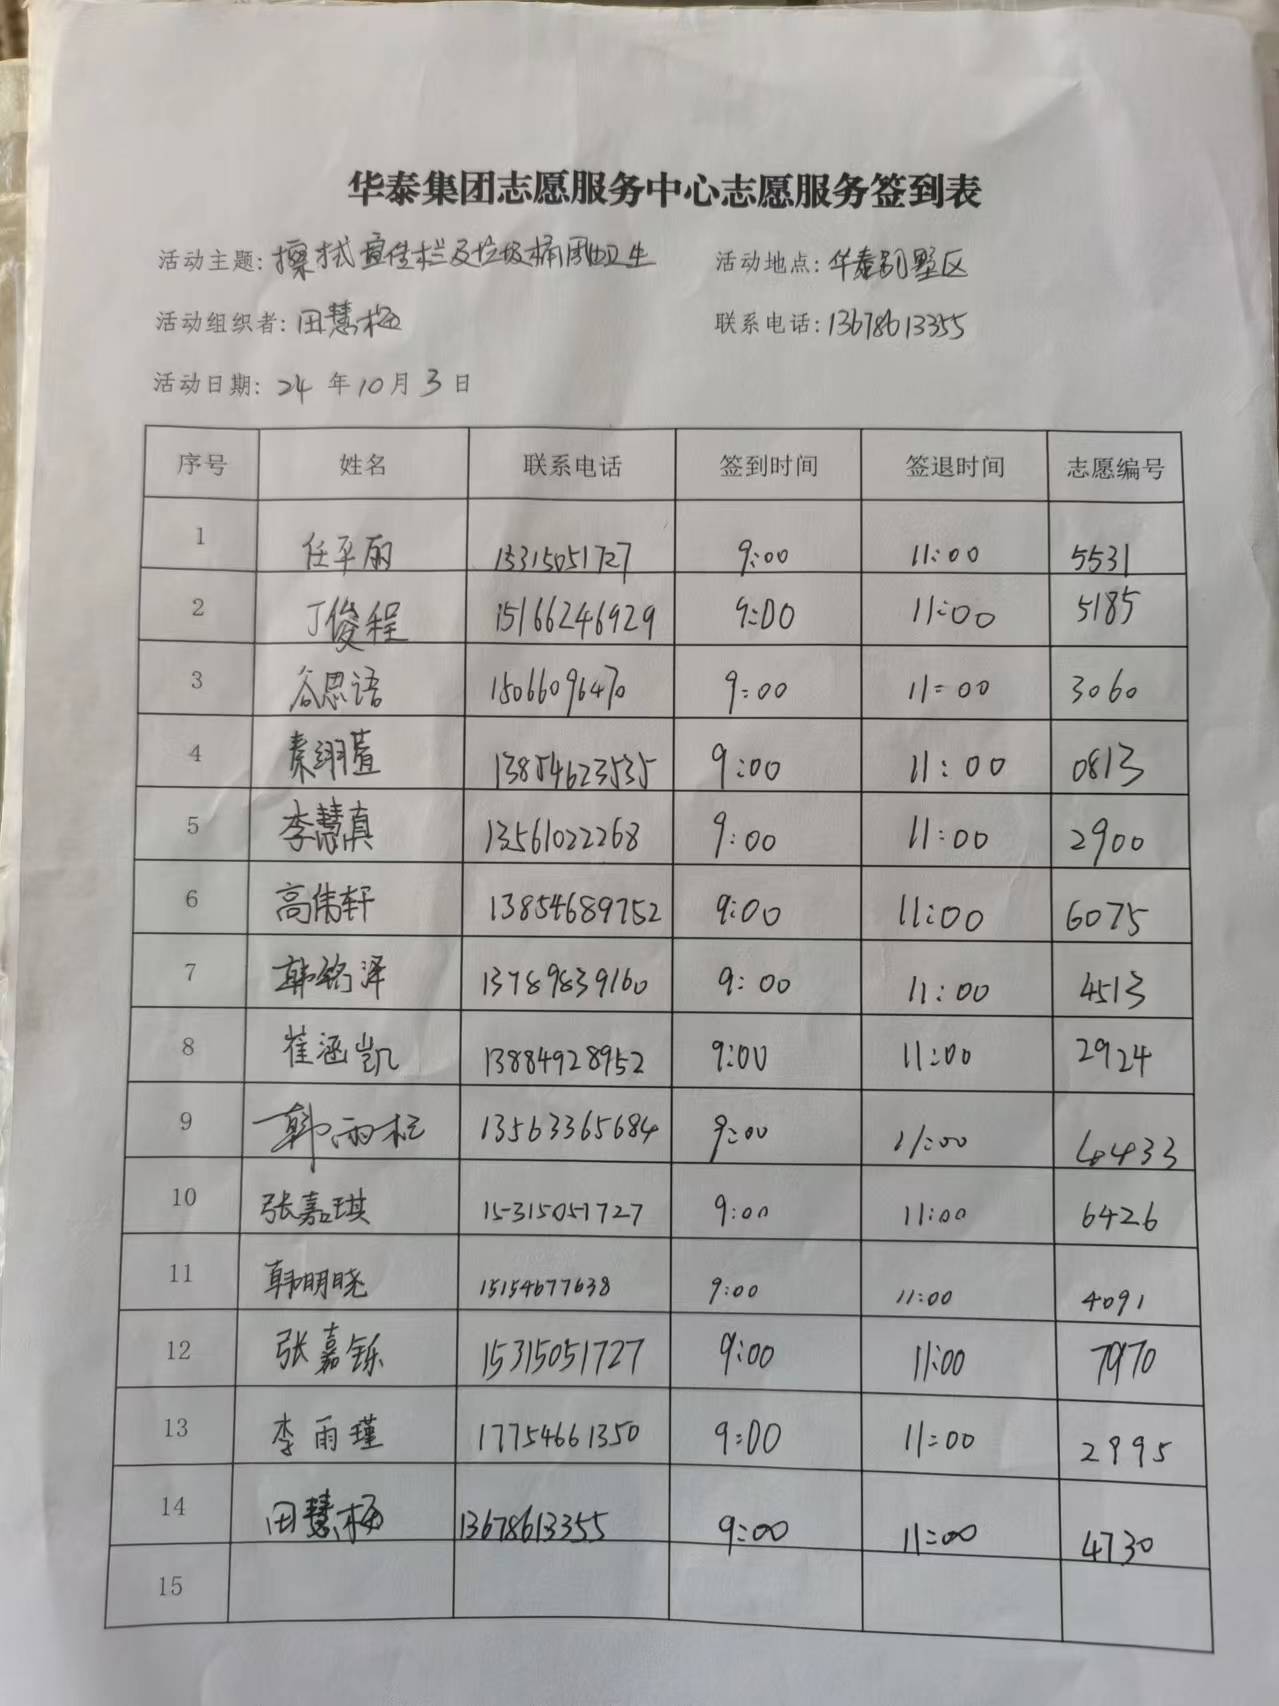 华泰集团志愿服务中心志愿服务签到表
活动主题: 擦拭宣传栏及垃圾桶周边卫生 活动地点: 华泰别墅区
活动组织者: 田慧梅 联系电话: 13678613355
活动日期: 24 年 10 月 3 日
序号 姓名 联系电话 签到时间 签退时间 志愿编号
1 任平丽 15315051727 9:00 11:00 5531
2 丁俊程 15166246929 9:00 11:00 5185
3 谷思语 15066096470 9:00 11:00 3060
4 秦翊萱 13854623535 9:00 11:00 0813
5 李慧真 13561022268 9:00 11:00 2900
6 高伟轩 13854689752 9:00 11:00 6075
7 韩铭泽 13789839160 9:00 11:00 4513
8 崔涵凯 13884928952 9:00 11:00 2924
9 韩雨 13563365684 9:00 11:00
10 张嘉琪 15315051727 9:00 11:00 6426
11 韩明晓 15154677638 9:00 11:00 4091
12 张嘉铄 15315051727 9:00 11:00 7970
13 李雨瑾 17754661350 9:00 11:00 2995
14 田慧梅 13678613355 9:00 11:00 4730
15